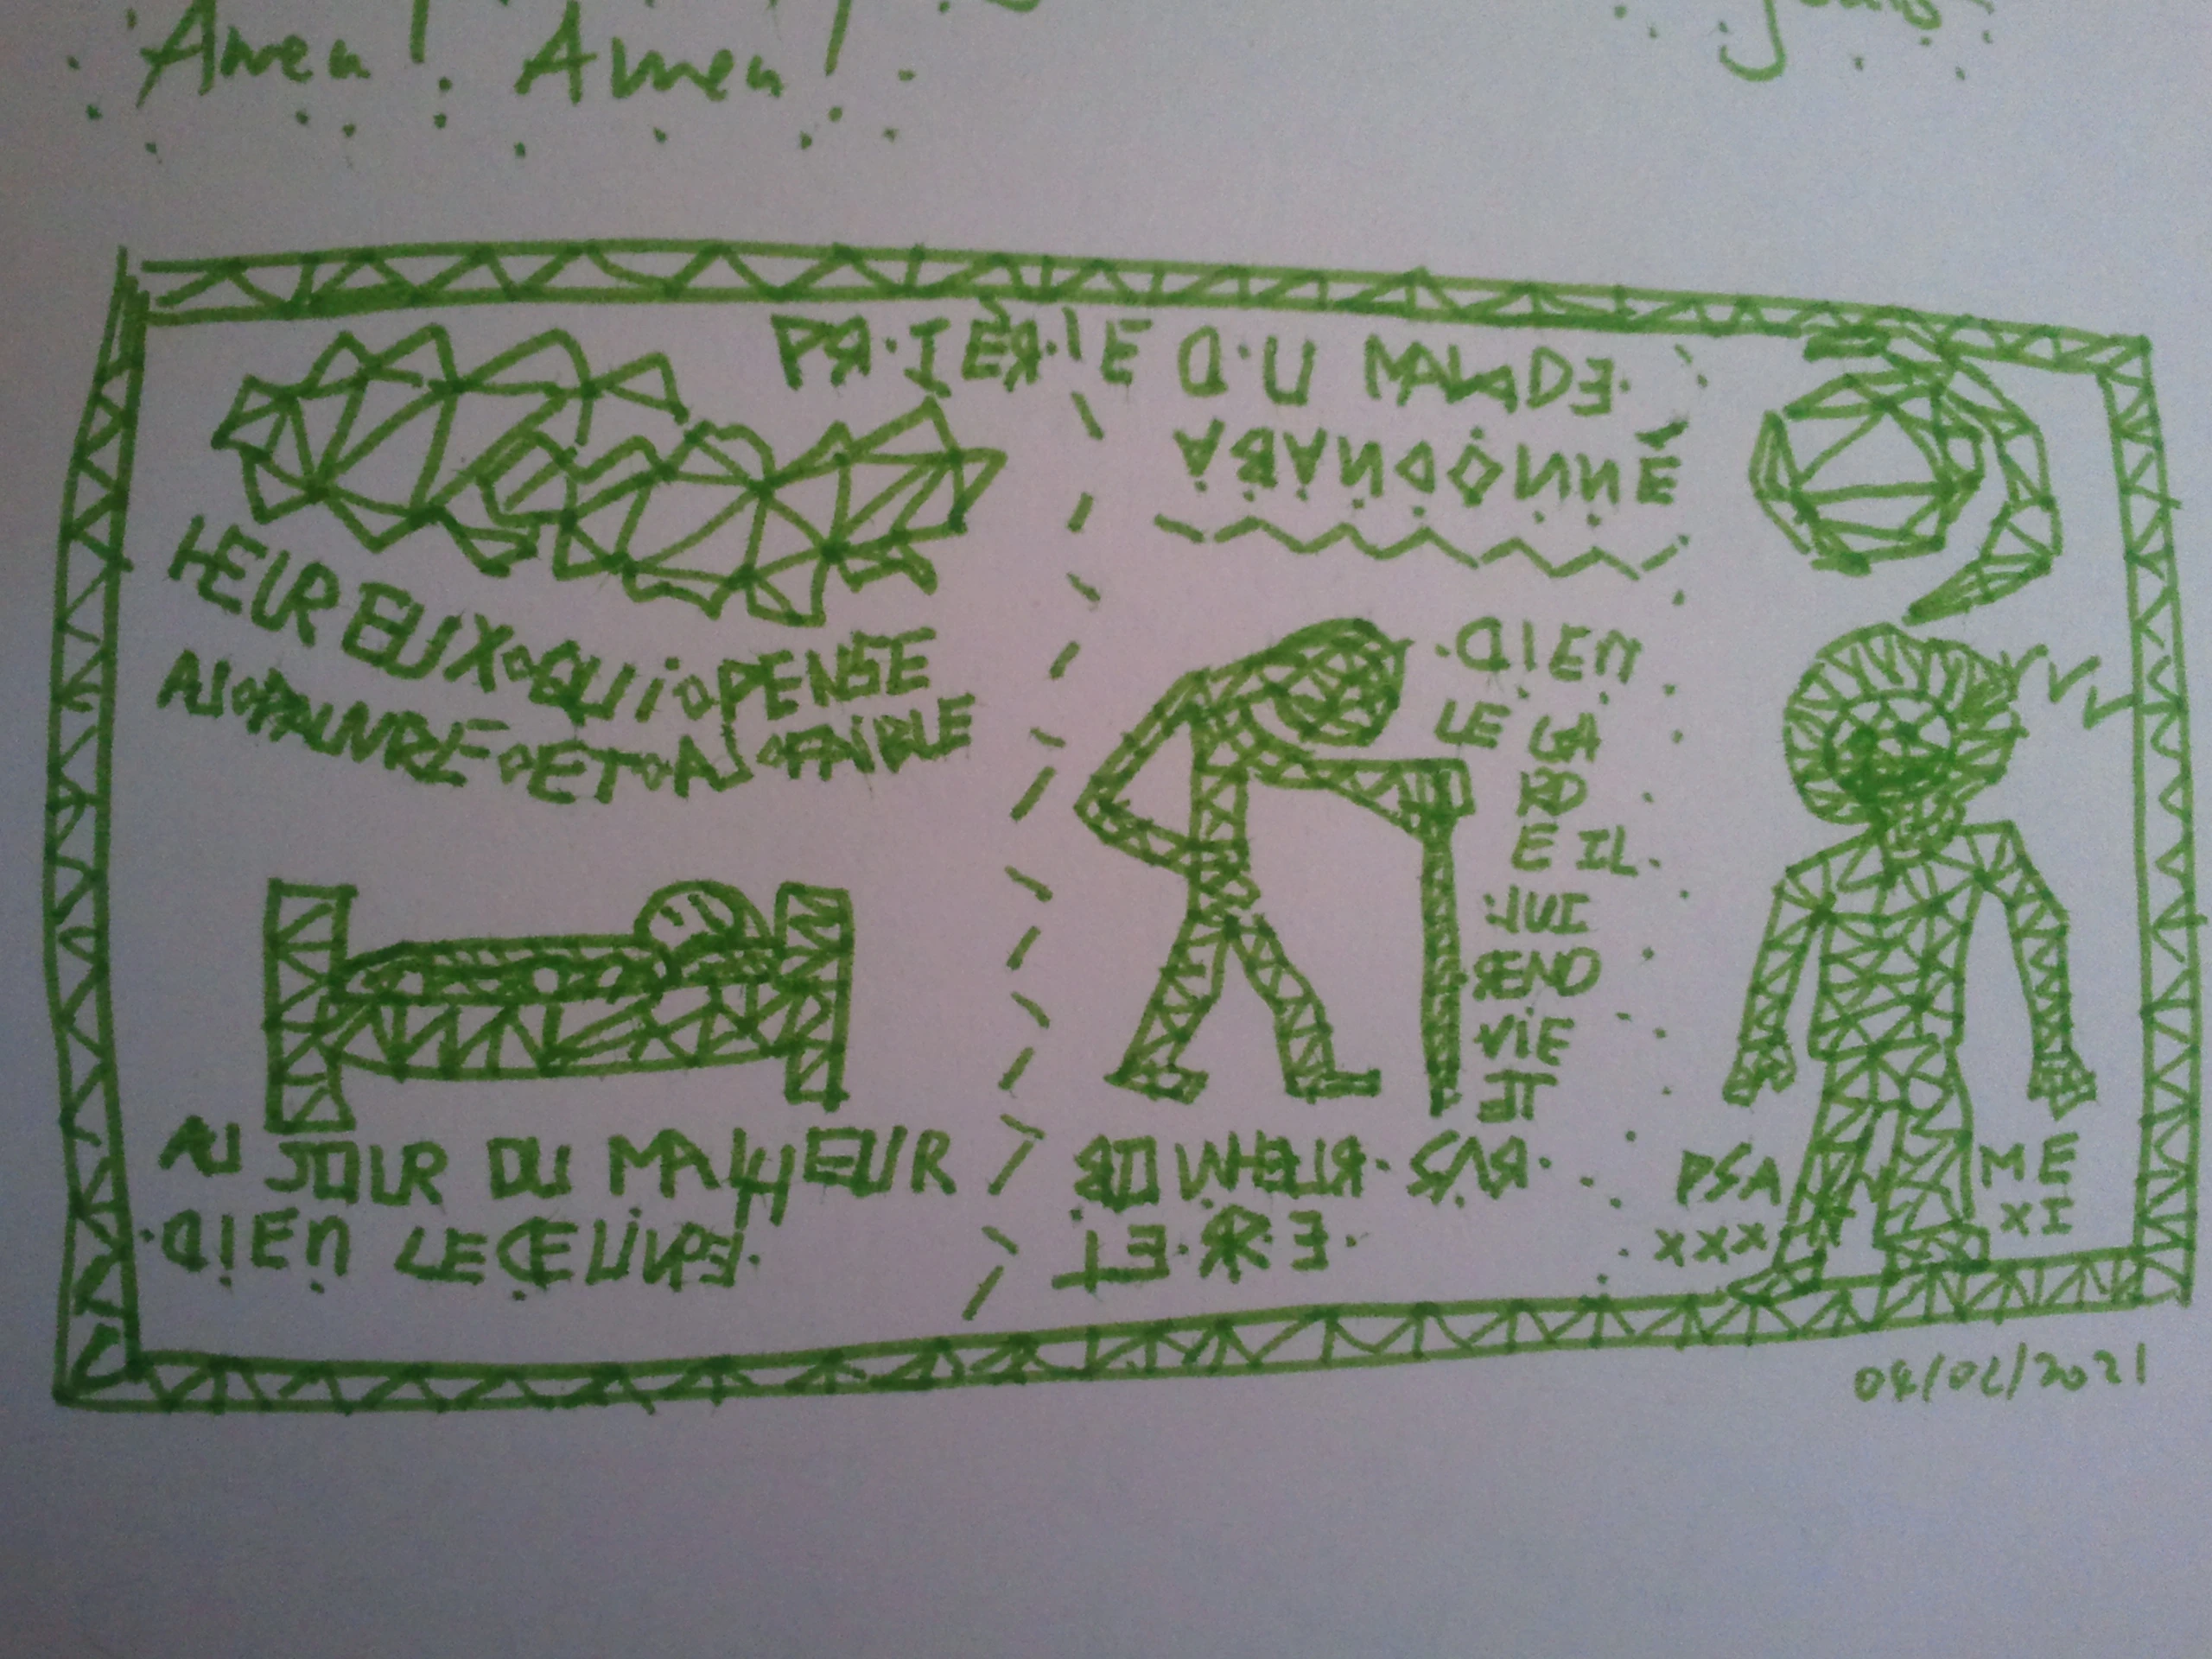 Amen ! Amen !
PRIÈRE DU MALADE.
ABANDONNÉ
HEUREUX QUI PENSE
AU PAUVRE ET AU FAIBLE
AU JOUR DU MALHEUR
DIEU LE DELIVRE.
DIEU
LE GA
RD
E IL.
LUI
REND
VIE
ET
BONHEUR SUR
TERRE.
PSA ME
XXX XI
04/02/2021